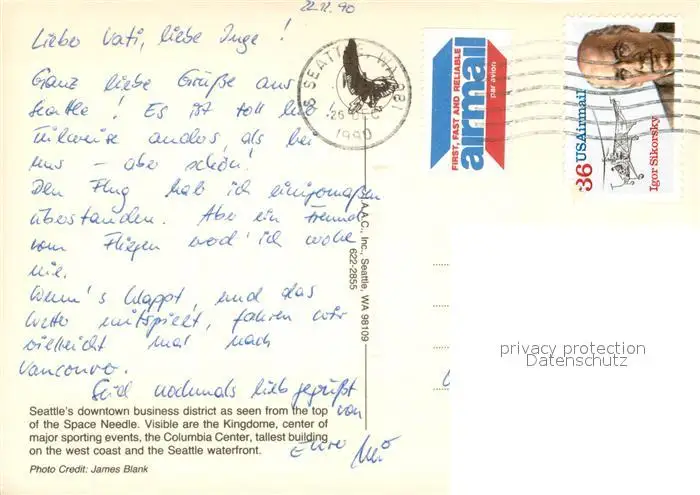 22.12.90
Lieber Vati, liebe Inge!
Ganz liebe Grüße aus
Seattle! Es ist toll hier!
Teilweise anders, als bei
uns – aber schön!
Den Flug hab ich einigermaßen
überstanden. Aber ein Freund
vom Fliegen werd' ich wohl
nie.
Wenn's klappt, und das
Wetter mitspielt, fahren wir
vielleicht mal nach
Vancouver.
Seid nochmals lieb gegrüßt
von
Eurer
Seattle's downtown business district as seen from the top
of the Space Needle. Visible are the Kingdome, center of
major sporting events, the Columbia Center, tallest building
on the west coast and the Seattle waterfront.
Photo Credit: James Blank
J.A.A.C., Inc., Seattle, WA 98109
622-2855
SEATTLE, WA 981
26
1990
FIRST, FAST AND RELIABLE
airmail
par avion
36 USAirmail
Igor Sikorsky
privacy protection
Datenschutz